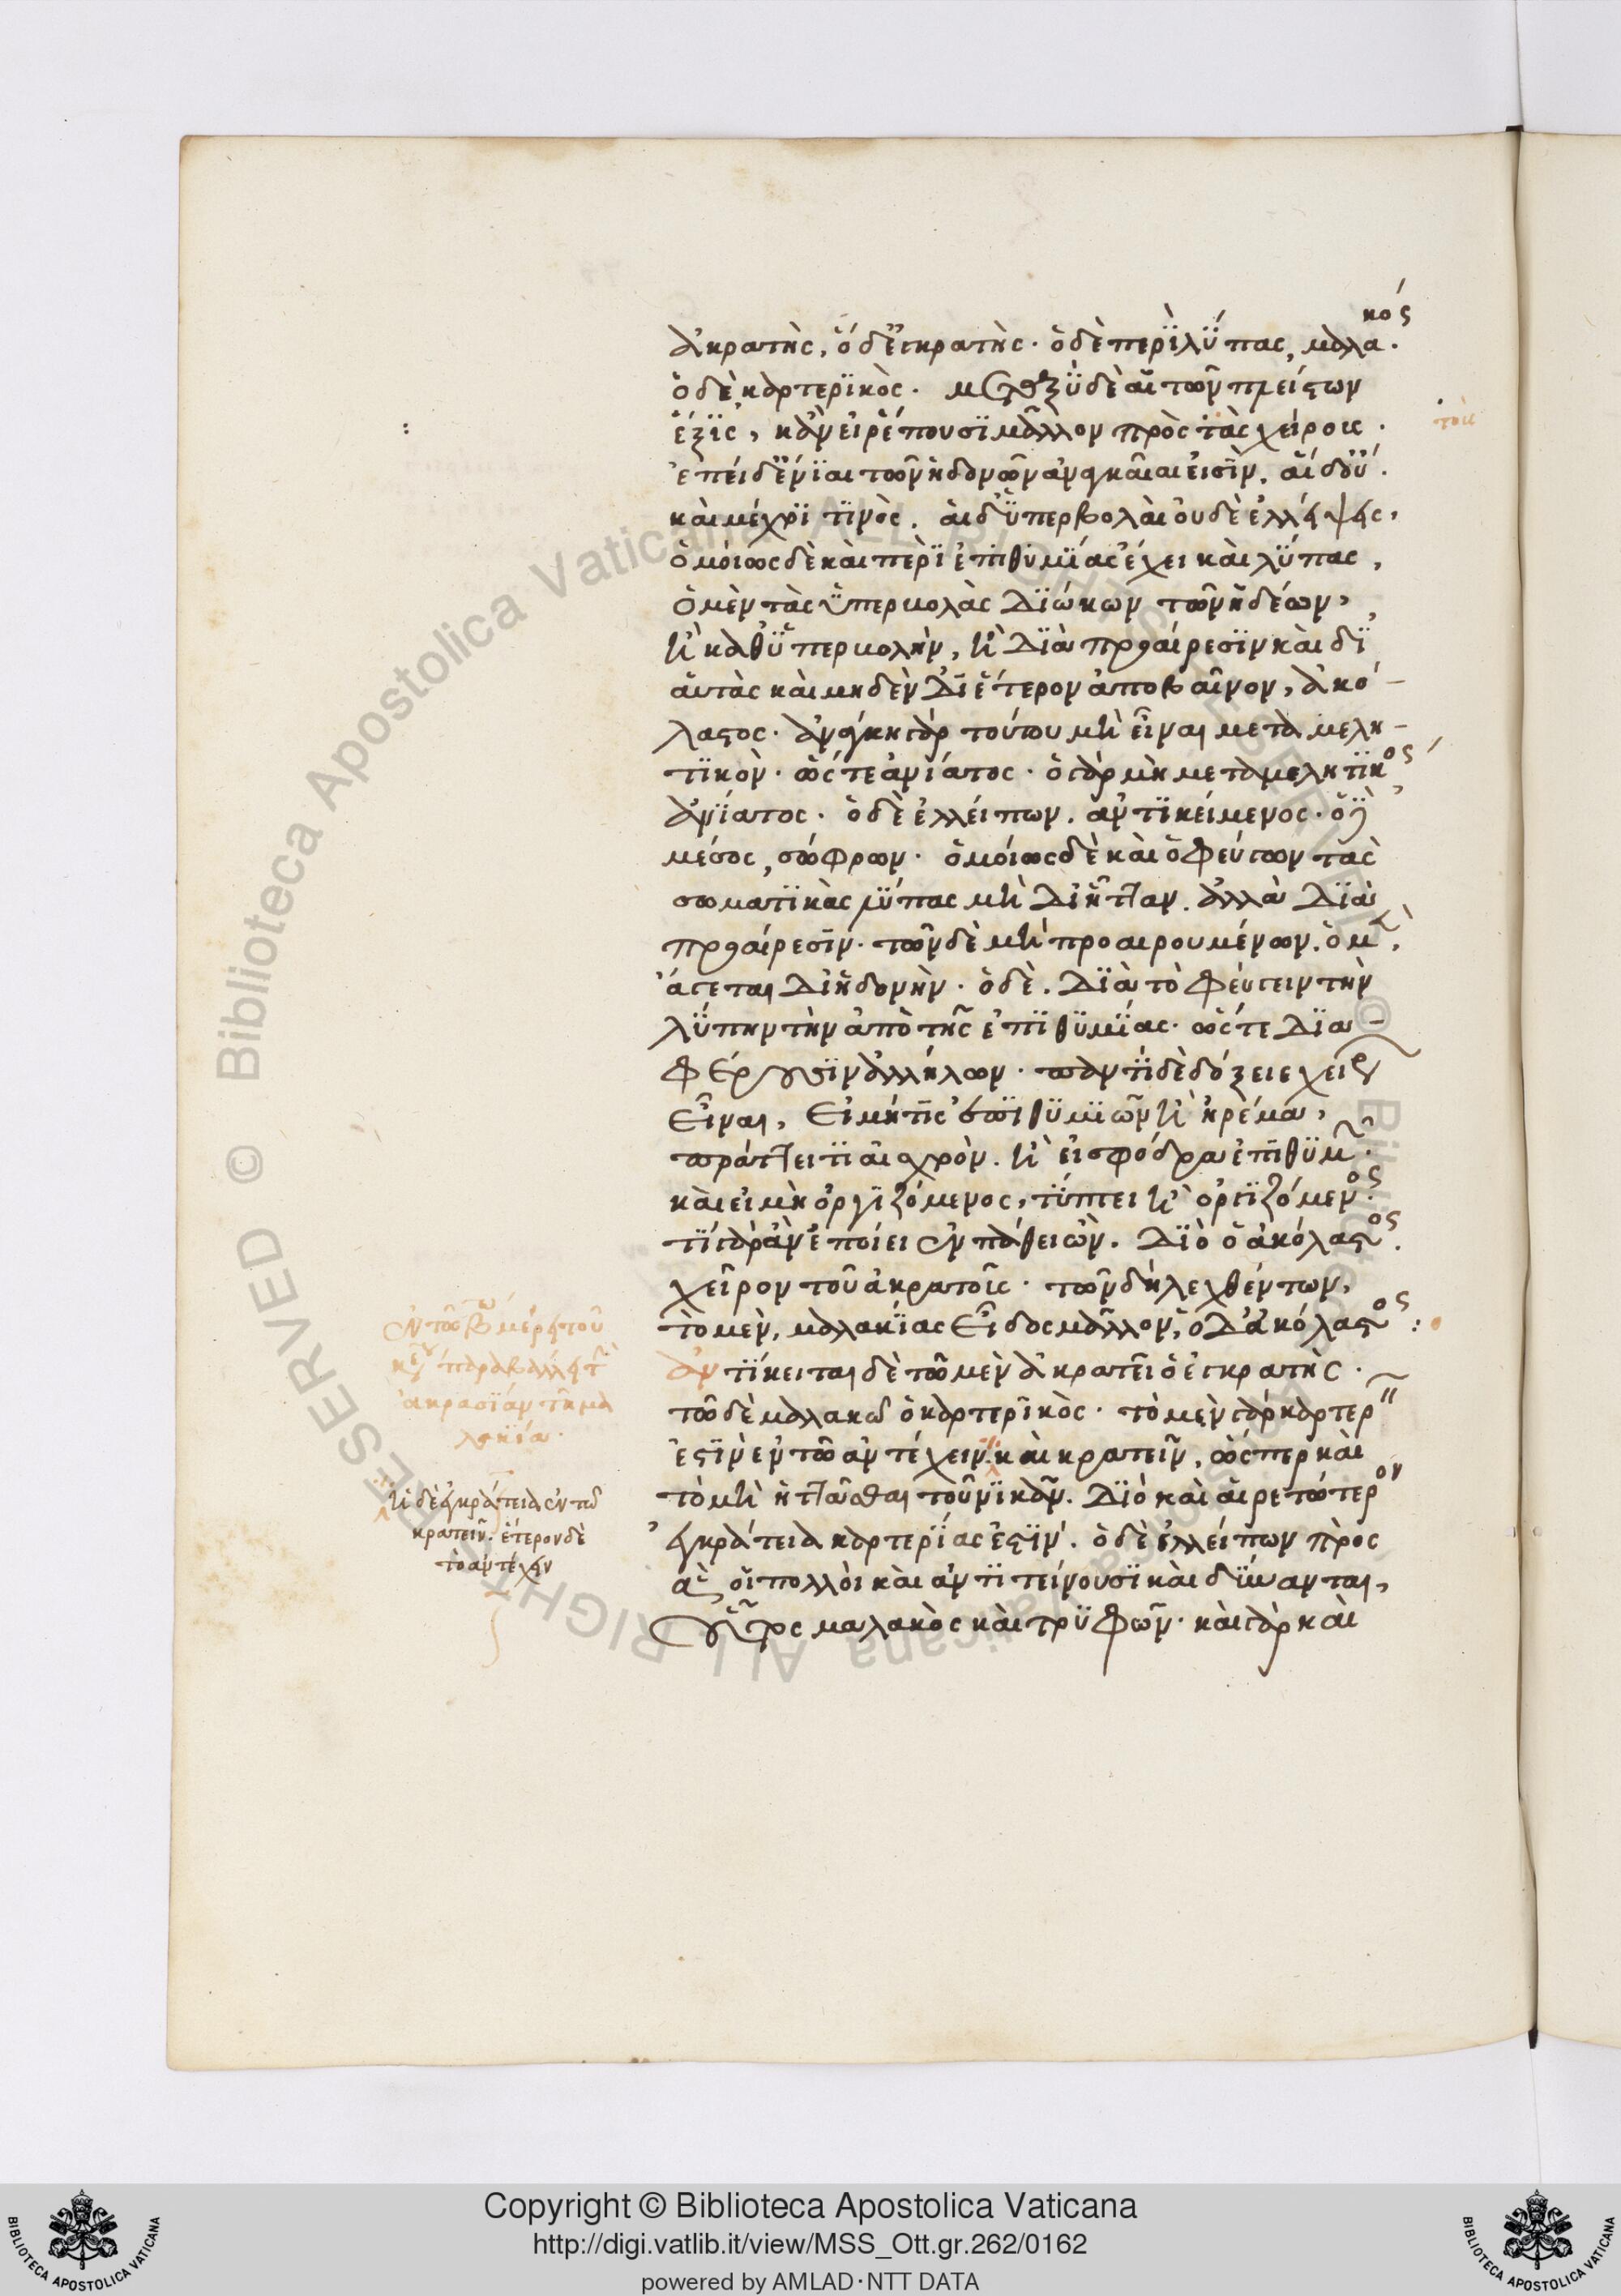 ἀκρατὴς, ὁ δ' ἐγκρατὴς· ὁ δὲ περὶ λύπας, μαλακός·
ὁ δὲ καρτερικὸς· μεταξὺ δὲ αἱ τῶν πλείστων
ἕξις, κἂν εἰ ῥέπουσι μᾶλλον πρὸς τὰς χείρους·
τὰς
ἐπεὶ δ' ἔνιαι τῶν ἡδονῶν ἀναγκαῖαι εἰσὶν, αἱ δ' οὔ·
καὶ μέχρι τινὸς, αἱ δ' ὑπερβολαὶ οὐδὲ ἐλλήψης,
ὁμοίως δὲ καὶ περὶ ἐπιθυμίας ἔχει καὶ λύπας,
ὁ μὲν τὰς ὑπερβολὰς διώκων τῶν ἡδέων,
ἢ καθ' ὑπερβολὴν, ἢ διὰ προαίρεσιν καὶ δι'
αὐτὰς καὶ μηδὲν δι' ἕτερον ἀποβαῖνον, ἀκό-
λαστος· ἀνάγκη γὰρ τοῦτον μὴ εἶναι μεταμελη-
τικὸν· ὥστε ἀνίατος· ὁ γὰρ μὴ μεταμελητικὸς,
ἀνίατος· ὁ δὲ ἐλλείπων, ἀντικείμενος· ὁ δὲ
μέσος, σώφρων· ὁμοίως δὲ καὶ ὁ φεύγων τὰς
σωματικὰς λύπας μὴ δι' ἧτταν, ἀλλὰ διὰ
προαίρεσιν· τῶν δὲ μὴ προαιρουμένων, ὁ μὲν,
ἄγεται δι' ἡδονὴν· ὁ δὲ, διὰ τὸ φεύγειν τὴν
λύπην τὴν ἀπὸ τῆς ἐπιθυμίας· ὥστε δια-
φέρουσιν ἀλλήλων· παντὶ δὲ δόξειε χείρων
εἶναι, εἰ μή τις ἐπιθυμιῶν ἢ ἠρέμα,
πράττει τι αἰσχρὸν, ἢ εἰ σφόδρα ἐπιθυμῶν·
καὶ εἰ μὴ ὀργιζόμενος, τύπτει ἢ ὀργιζόμενος·
τί γὰρ ἂν ἐποίει ἐν πάθει ὢν. διὸ ὁ ἀκόλαστος.
χεῖρον τοῦ ἀκρατοῦς· τῶν δὴ λεχθέντων,
τὸ μὲν, μαλακίας εἶδος μᾶλλον, ὁ δ' ἀκόλαστος :
ἀντίκειται δὲ τῶ μὲν ἀκρατεῖ ὁ ἐγκρατὴς·
τῶ δὲ μαλακῶ ὁ καρτερικὸς· τὸ μὲν γὰρ καρτερεῖν
ἐστὶν ἐν τῶ ἀντέχειν· καὶ κρατεῖν, ὥσπερ καὶ
τὸ μὴ ἡττᾶσθαι τοῦ νικᾶν. διὸ καὶ αἱρετώτερον
ἐγκράτεια καρτερίας ἐστὶν. ὁ δὲ ἐλλείπων πρὸς
ἃς οἱ πολλοὶ καὶ ἀντιτείνουσι καὶ δύνανται,
οὗτος μαλακὸς καὶ τρυφῶν· καὶ γὰρ καὶ
ἐν τῶ βω μέρη τοῦ
παραβάλλη τὴν
ἀκρασίαν τῆ μα
λακία·
ἡ δὲ ἐγκράτεια ἐν τῶ
κρατεῖν. ἕτερον δὲ
τὸ ἀντέχην
© Biblioteca Apostolica Vaticana ALL RIGHTS RESERVED
Copyright © Biblioteca Apostolica Vaticana
http://digi.vatlib.it/view/MSS_Ott.gr.262/0162
powered by AMLAD·NTT DATA
BIBLIOTECA APOSTOLICA VATICANA
BIBLIOTECA APOSTOLICA VATICANA